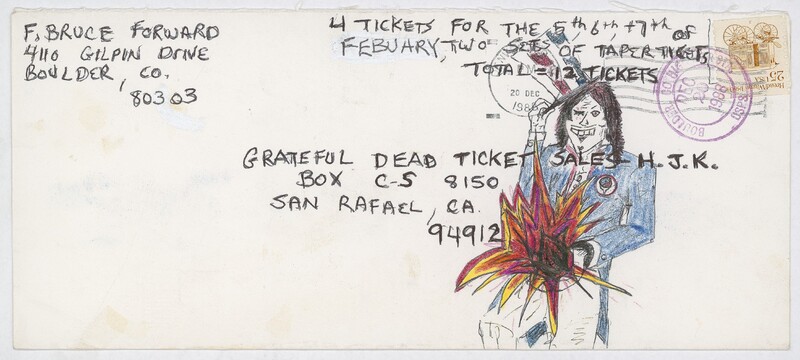 F. BRUCE FORWARD
4110 GILPIN DRIVE
BOULDER, CO.
80303
4 TICKETS FOR THE 5th, 6th, +7th OF
FEBUARY, TWO SETS OF TAPER TICKETS
TOTAL = 12 TICKETS
20 DEC
1988
BOULDER
DEC 20 1988
USPO
25 USA
GRATEFUL DEAD TICKET SALES - H.J.K.
BOX C-S 8150
SAN RAFAEL, CA.
94912